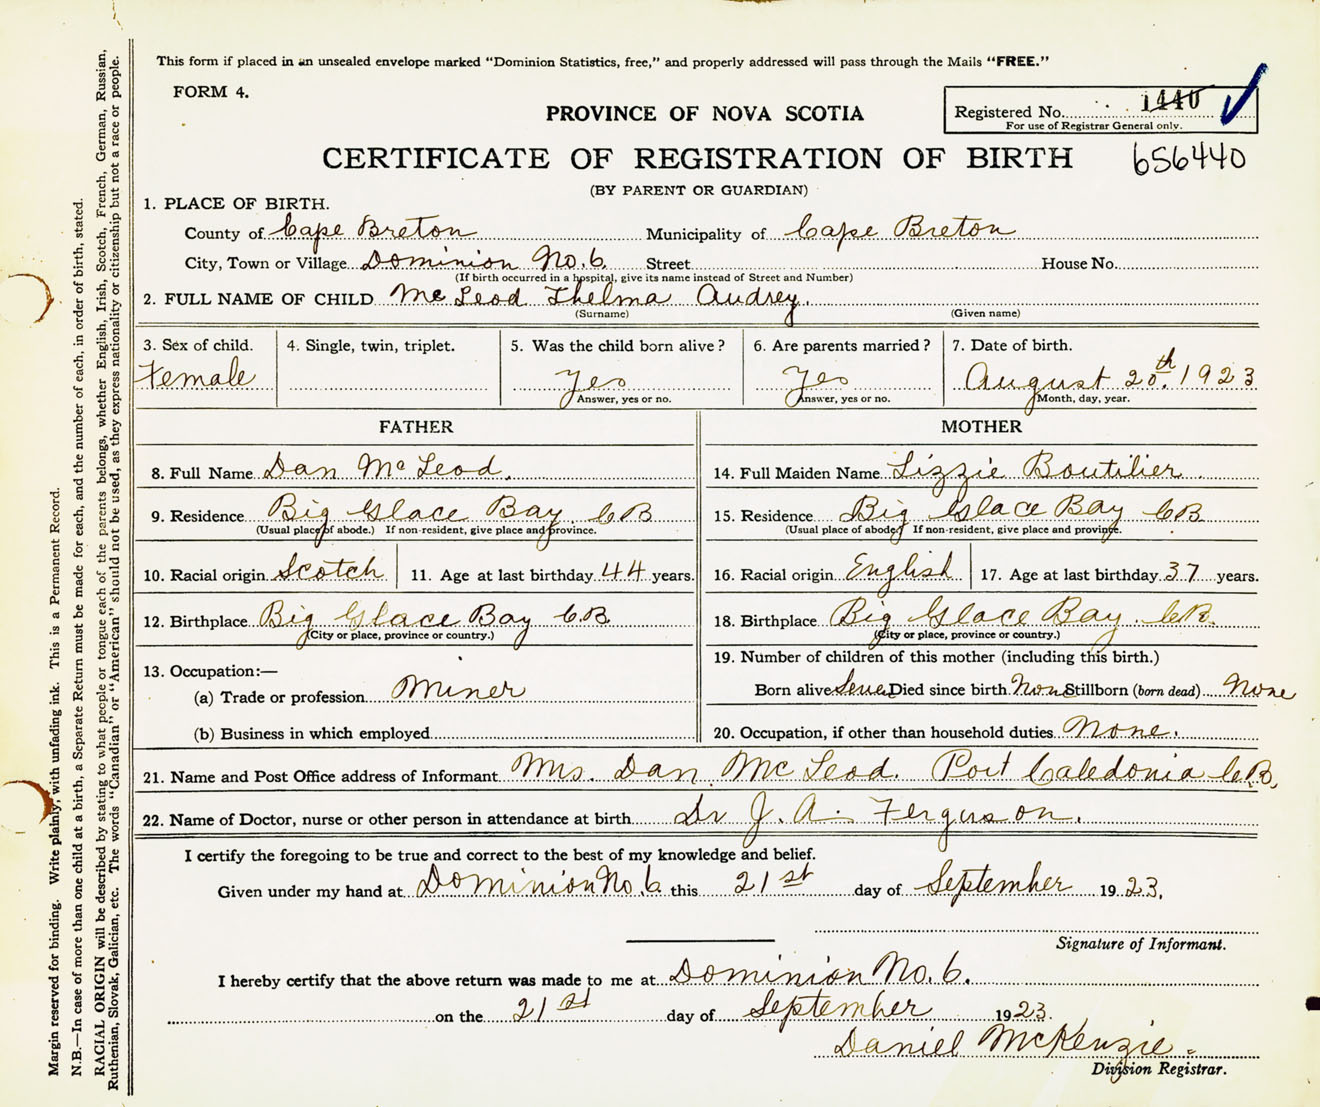 This form if placed in an unsealed envelope marked "Dominion Statistics, free," and properly addressed will pass through the Mails "FREE."
FORM 4.
PROVINCE OF NOVA SCOTIA
Registered No. 1440
For use of Registrar General only.
CERTIFICATE OF REGISTRATION OF BIRTH
656440
(BY PARENT OR GUARDIAN)
1. PLACE OF BIRTH.
County of Cape Breton Municipality of Cape Breton
City, Town or Village Dominion No. 6. Street House No.
(If birth occurred in a hospital, give its name instead of Street and Number)
2. FULL NAME OF CHILD Mc Leod Thelma Audrey.
(Surname) (Given name)
3. Sex of child. 4. Single, twin, triplet. 5. Was the child born alive? 6. Are parents married? 7. Date of birth.
Female Yes Yes August 20th. 1923
Answer, yes or no. Answer, yes or no. Month, day, year.
FATHER
8. Full Name Dan Mc Leod.
9. Residence Big Glace Bay CB
(Usual place of abode.) If non-resident, give place and province.
10. Racial origin Scotch 11. Age at last birthday 44 years.
12. Birthplace Big Glace Bay C.B.
(City or place, province or country.)
13. Occupation:—
(a) Trade or profession Miner
(b) Business in which employed
MOTHER
14. Full Maiden Name Lizzie Boutilier
15. Residence Big Glace Bay CB
(Usual place of abode) If non-resident, give place and province.
16. Racial origin English 17. Age at last birthday 37 years.
18. Birthplace Big Glace Bay. C.B.
(City or place, province or country.)
19. Number of children of this mother (including this birth.)
Born alive Seven Died since birth None Stillborn (born dead) None
20. Occupation, if other than household duties None.
21. Name and Post Office address of Informant Mrs. Dan Mc Leod. Port Caledonia C.B.
22. Name of Doctor, nurse or other person in attendance at birth Dr J. A. Ferguson.
I certify the foregoing to be true and correct to the best of my knowledge and belief.
Given under my hand at Dominion No. 6 this 21st day of September 1923.
Signature of Informant.
I hereby certify that the above return was made to me at Dominion No. 6.
on the 21st day of September 1923.
Daniel McKenzie.
Division Registrar.
Margin reserved for binding. Write plainly, with unfading ink. This is a Permanent Record.
N.B.—In case of more than one child at a birth, a Separate Return must be made for each, and the number of each, in order of birth, stated.
RACIAL ORIGIN will be described by stating to what people or tongue each of the parents belongs, whether English, Irish, Scotch, French, German, Russian,
Ruthenian, Slovak, Galician, etc. The words "Canadian" or "American" should not be used, as they express nationality or citizenship but not a race or people.